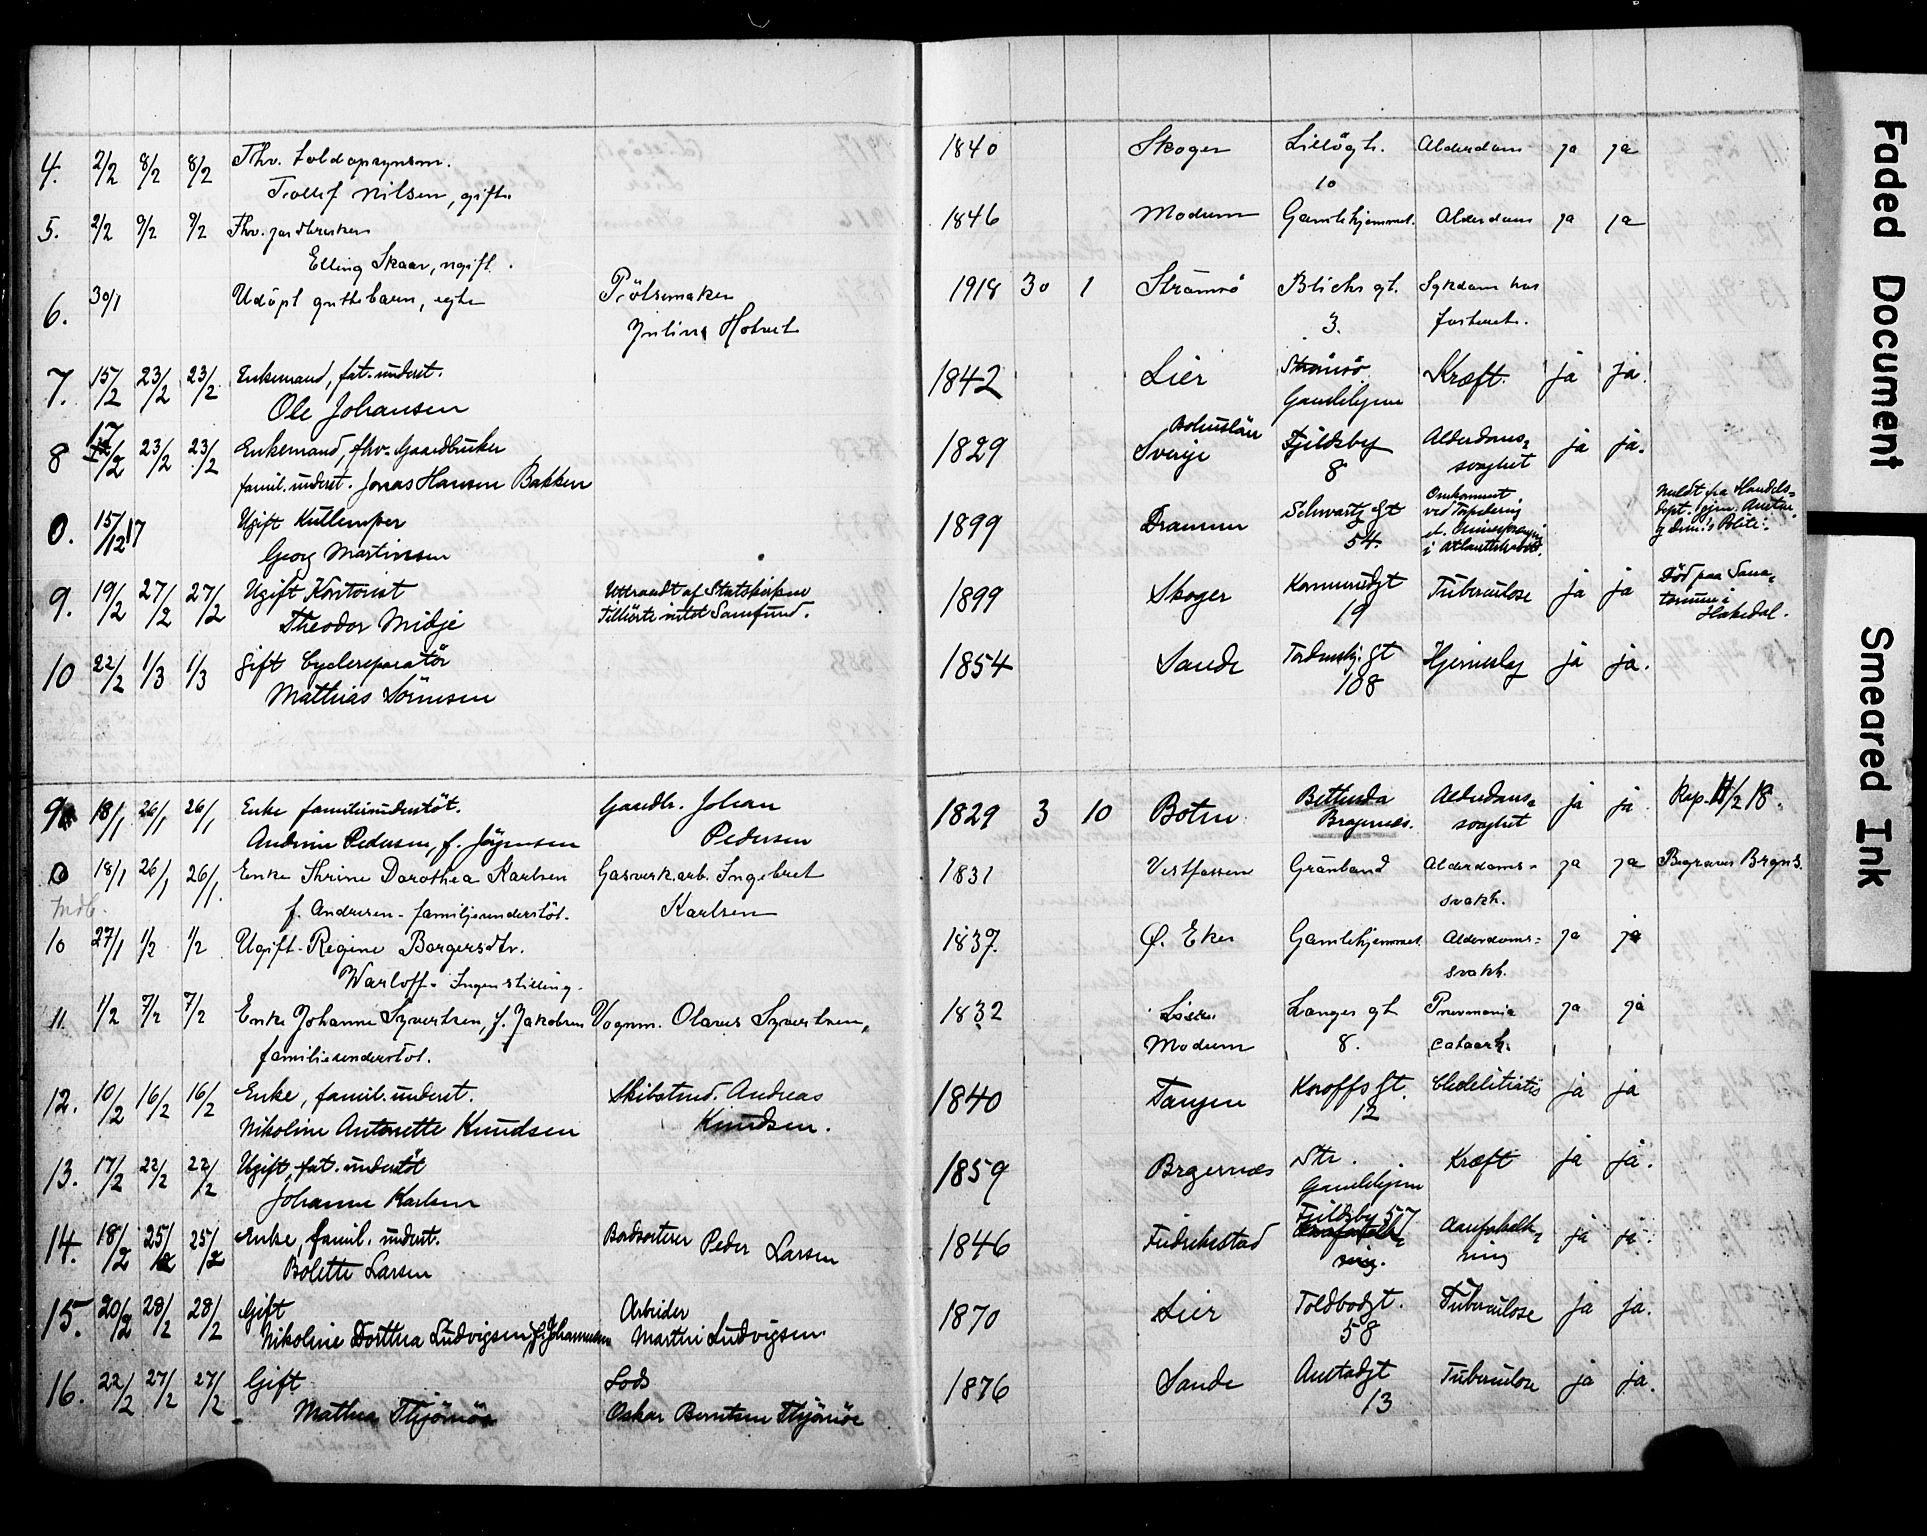 4. 2/2 8/2 8/2 Fhv. toldopsynsm. 1840 Skoger Lilløgt. Alderdom ja ja
Tollef Nilsen, gift. 10
5. 2/2 9/2 9/2 Fhv. gardbruker 1846 Modum Gamlehjemmet. Alderdom ja ja
Elling Skaar, ugift.
6. 30/1 Udøpt guttebarn, egte Pølsemaker 1918 30 1 Strømsø Blichs gt. Sykdom hos
Julius Hotvet 3. fosteret.
7. 15/2 23/2 23/2 Enkemand, fat. underst. 1842 Lier Strømsø Kræft. ja ja.
Ole Johansen Gamlehjem
8 17/2 23/2 23/2 Enkemand, fhv. Gaardbruker 1829 Bohuslän Fjeldsby Alderdoms- ja ja.
famil. underst. Jonas Hansen Bakken Sverige 8 svaghet
0. 15/12 17 Ugift Kullemper 1899 Drammen Schwartz gt Omkommet Meldt fra Handels-
Georg Martinsen 54. ved Torpedering Dept. gjen.
i Atlanterhavet. Politi.
9. 19/2 27/2 27/2 Ugift Kontorist Uttraadt af Statskirken 1899 Skoger Konnerudgt Tuberculose ja ja Død paa Sana-
Theodor Midje Tilhørte intet Samfund. 19 torium i
Hakedal.
10 22/2 1/3 1/3 Gift Cyclereparatør 1854 Sande Tordenskj. gt Hjerneslag ja ja.
Mathias Sørensen 108
9 18/1 26/1 26/1 Enke familieunderstøt. Gaardbr. Johan 1829 3 10 Botne Betlunda Alderdoms- ja ja Rap. 11/2 18.
Andrine Pedersen, f. Jørgensen Pedersen Bragernes. svaghet
10 18/1 26/1 26/1. Enke Thrine Dorothea Karlsen Gasverkarb. Ingebret 1831 Vestfossen Grønland Alderdoms- ja ja Begraves Brgns.
Mdb. f. Andresen - familjeunderstøt. Karlsen svakh.
10 27/1 1/2 1/2 Ugift - Regine Borgersdtr. 1837. Ø. Eker Gamlehjemmet. Alderdoms- ja ja
Warloff - Ingen stilling. svakh.
11. 1/2 7/2 7/2 Enke Johanne Syvertsen, f. Jakobsen Vognm. Olaves Syvertsen, 1832 Lier. Langes gt Pneumonia ja ja
familieunderstøt. Modum 8. catarrh.
12. 10/2 16/2 16/2 Enke, famil. underst. Skibstmd. Andreas 1840 Tangen Kroffs gt. ja ja
Nikoline Antonette Knudsen Knudsen. 12
13. 17/2 22/2 22/2 Ugift, fat. understøt 1859 Bragernæs Str. Kræft ja ja.
Johanne Karlsen Gamlehjem
14. 18/2 25/2 25/2 Enke, famil. underst. Bordsorterer Peder Larsen 1846 Fredrikstad Fjeldsby 57 Aareforkalk- ja ja.
Bolette Larsen ning. ning
15. 20/2 28/2 28/2 Gift Arbeider 1870 Lier Toldbodgt. Tuberculose ja ja.
Nikoline Dorthea Ludvigsen f. Johannesen Martin Ludvigsen 58
16. 22/2 27/2 27/2 Gift Lods 1876 Sande Austadgt Tuberculose ja ja.
Mathea Thjømøe Oskar Berntsen Thjømøe 13
Faded Document
Smeared Ink